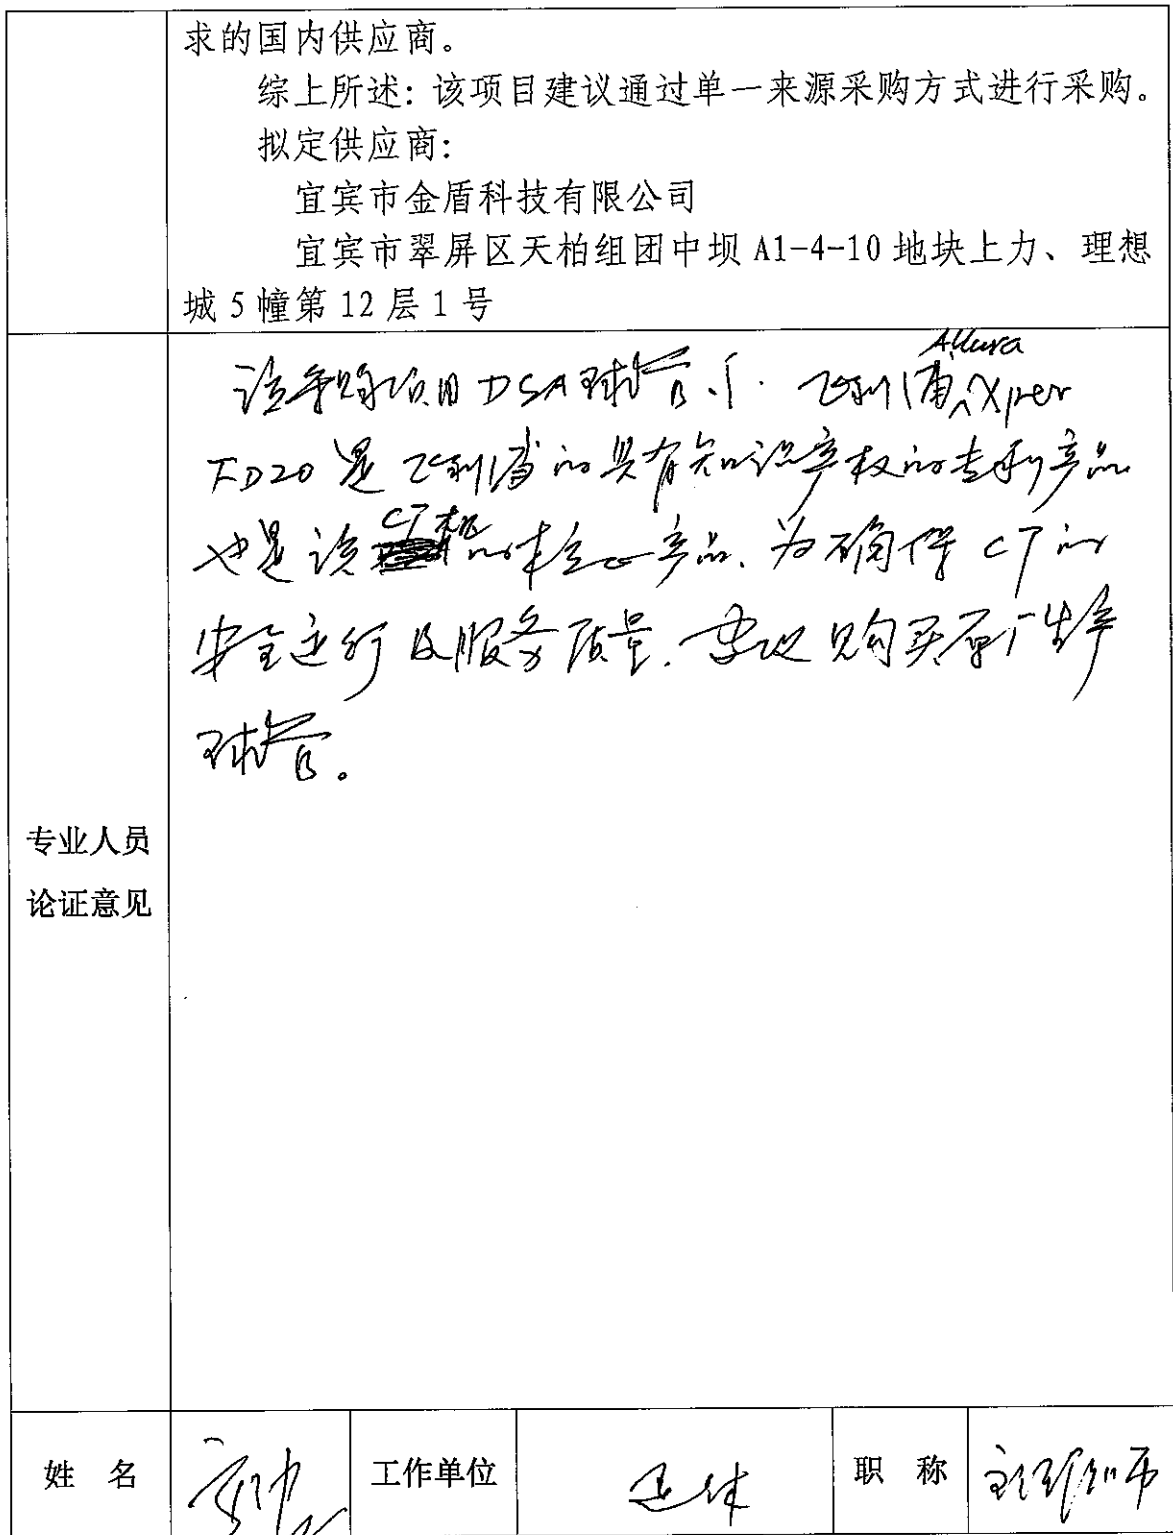 求的国内供应商。
综上所述：该项目建议通过单一来源采购方式进行采购。
拟定供应商：
宜宾市金盾科技有限公司
宜宾市翠屏区天柏组团中坝 A1-4-10 地块上力、理想
城 5 幢第 12 层 1 号
该采购项目 DSA 球管 飞利浦 Allura Xper
FD20 是飞利浦的具有知识产权的专利产品
也是该CT机的核心产品、为确保 CT 的
安全运行及服务质量、建议购买原厂生产
球管。
专业人员
论证意见
姓 名
工作单位
退休
职 称